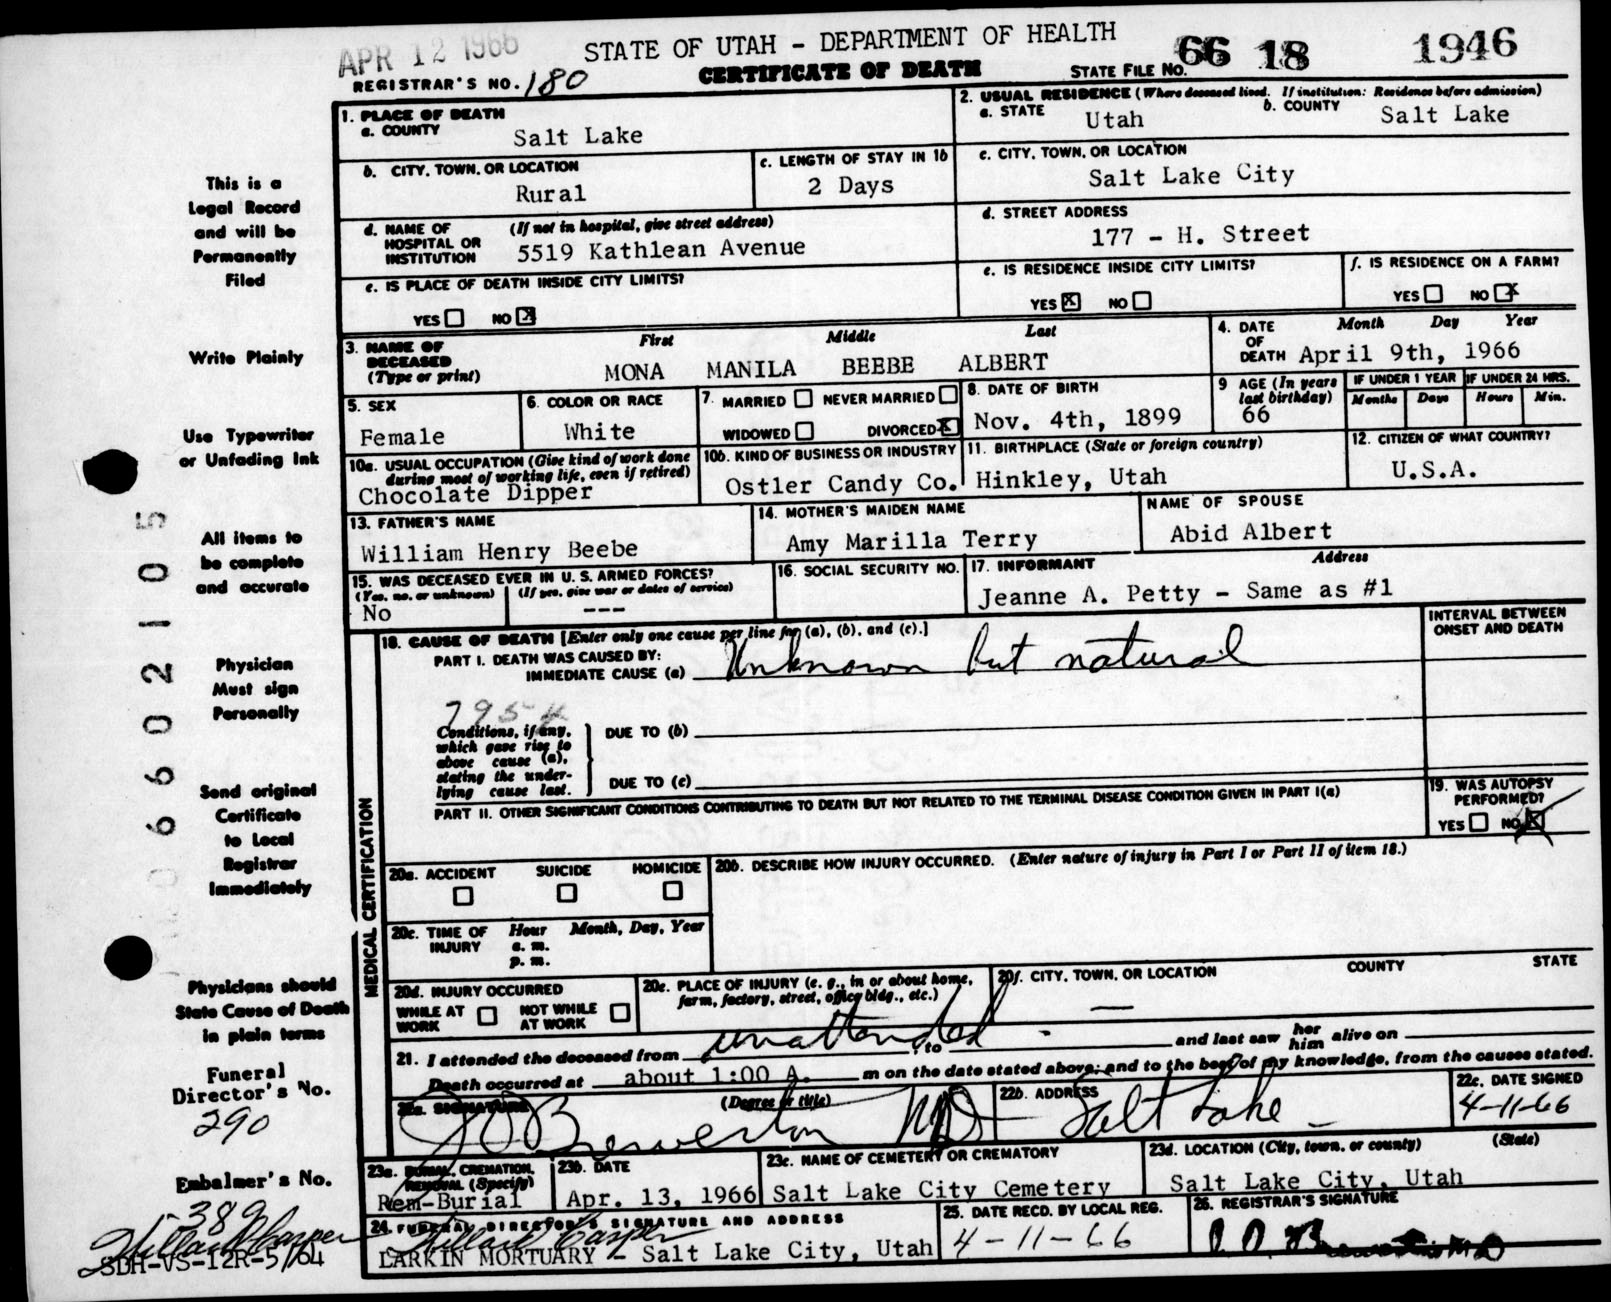 APR 12 1966
STATE OF UTAH - DEPARTMENT OF HEALTH
66 18 1946
REGISTRAR'S NO. 180
CERTIFICATE OF DEATH
STATE FILE NO.
1. PLACE OF DEATH
a. COUNTY
Salt Lake
2. USUAL RESIDENCE (Where deceased lived. If institution: Residence before admission)
a. STATE
Utah
b. COUNTY
Salt Lake
b. CITY, TOWN, OR LOCATION
Rural
c. LENGTH OF STAY IN 1b
2 Days
c. CITY, TOWN, OR LOCATION
Salt Lake City
d. NAME OF HOSPITAL OR INSTITUTION
(If not in hospital, give street address)
5519 Kathlean Avenue
d. STREET ADDRESS
177 - H. Street
e. IS PLACE OF DEATH INSIDE CITY LIMITS?
YES NO X
e. IS RESIDENCE INSIDE CITY LIMITS?
YES X NO
f. IS RESIDENCE ON A FARM?
YES NO X
3. NAME OF DECEASED
(Type or print)
First Middle Last
MONA MANILA BEEBE ALBERT
4. DATE OF DEATH
Month Day Year
April 9th, 1966
5. SEX
Female
6. COLOR OR RACE
White
7. MARRIED NEVER MARRIED
WIDOWED DIVORCED X
8. DATE OF BIRTH
Nov. 4th, 1899
9 AGE (In years last birthday)
66
IF UNDER 1 YEAR
Months Days
IF UNDER 24 HRS.
Hours Min.
10a. USUAL OCCUPATION (Give kind of work done during most of working life, even if retired)
Chocolate Dipper
10b. KIND OF BUSINESS OR INDUSTRY
Ostler Candy Co.
11. BIRTHPLACE (State or foreign country)
Hinkley, Utah
12. CITIZEN OF WHAT COUNTRY?
U.S.A.
13. FATHER'S NAME
William Henry Beebe
14. MOTHER'S MAIDEN NAME
Amy Marilla Terry
NAME OF SPOUSE
Abid Albert
15. WAS DECEASED EVER IN U. S. ARMED FORCES?
(Yes, no, or unknown) (If yes, give war or dates of service)
No ---
16. SOCIAL SECURITY NO.
17. INFORMANT Address
Jeanne A. Petty - Same as #1
18. CAUSE OF DEATH [Enter only one cause per line for (a), (b), and (c).]
INTERVAL BETWEEN ONSET AND DEATH
PART I. DEATH WAS CAUSED BY:
IMMEDIATE CAUSE (a)
Unknown but natural
795
Conditions, if any, which gave rise to above cause (a), stating the underlying cause last.
DUE TO (b)
DUE TO (c)
PART II. OTHER SIGNIFICANT CONDITIONS CONTRIBUTING TO DEATH BUT NOT RELATED TO THE TERMINAL DISEASE CONDITION GIVEN IN PART I(a)
19. WAS AUTOPSY PERFORMED?
YES NO X
MEDICAL CERTIFICATION
20a. ACCIDENT SUICIDE HOMICIDE
20b. DESCRIBE HOW INJURY OCCURRED. (Enter nature of injury in Part I or Part II of item 18.)
20c. TIME OF INJURY
Hour Month, Day, Year
a. m.
p. m.
20d. INJURY OCCURRED
WHILE AT WORK NOT WHILE AT WORK
20e. PLACE OF INJURY (e. g., in or about home, farm, factory, street, office bldg., etc.)
20f. CITY, TOWN, OR LOCATION COUNTY STATE
21. I attended the deceased from unattended, to - and last saw her him alive on
Death occurred at about 1:00 A. m on the date stated above; and to the best of my knowledge, from the causes stated.
22a. SIGNATURE (Degree or title)
Brewerton MD
22b. ADDRESS
Salt Lake
22c. DATE SIGNED
4-11-66
23a. BURIAL, CREMATION, REMOVAL (Specify)
Rem-Burial
23b. DATE
Apr. 13, 1966
23c. NAME OF CEMETERY OR CREMATORY
Salt Lake City Cemetery
23d. LOCATION (City, town, or county) (State)
Salt Lake City, Utah
24. FUNERAL DIRECTOR'S SIGNATURE AND ADDRESS
LARKIN MORTUARY - Salt Lake City, Utah
25. DATE RECD. BY LOCAL REG.
4-11-66
26. REGISTRAR'S SIGNATURE
This is a
Legal Record
and will be
Permanently
Filed
Write Plainly
Use Typewriter
or Unfading Ink
All items to
be complete
and accurate
Physician
Must sign
Personally
Send original
Certificate
to Local
Registrar
Immediately
Physicians should
State Cause of Death
in plain terms
Funeral
Director's No.
290
Embalmer's No.
389
SDH-VS-12R-5/64
06602105